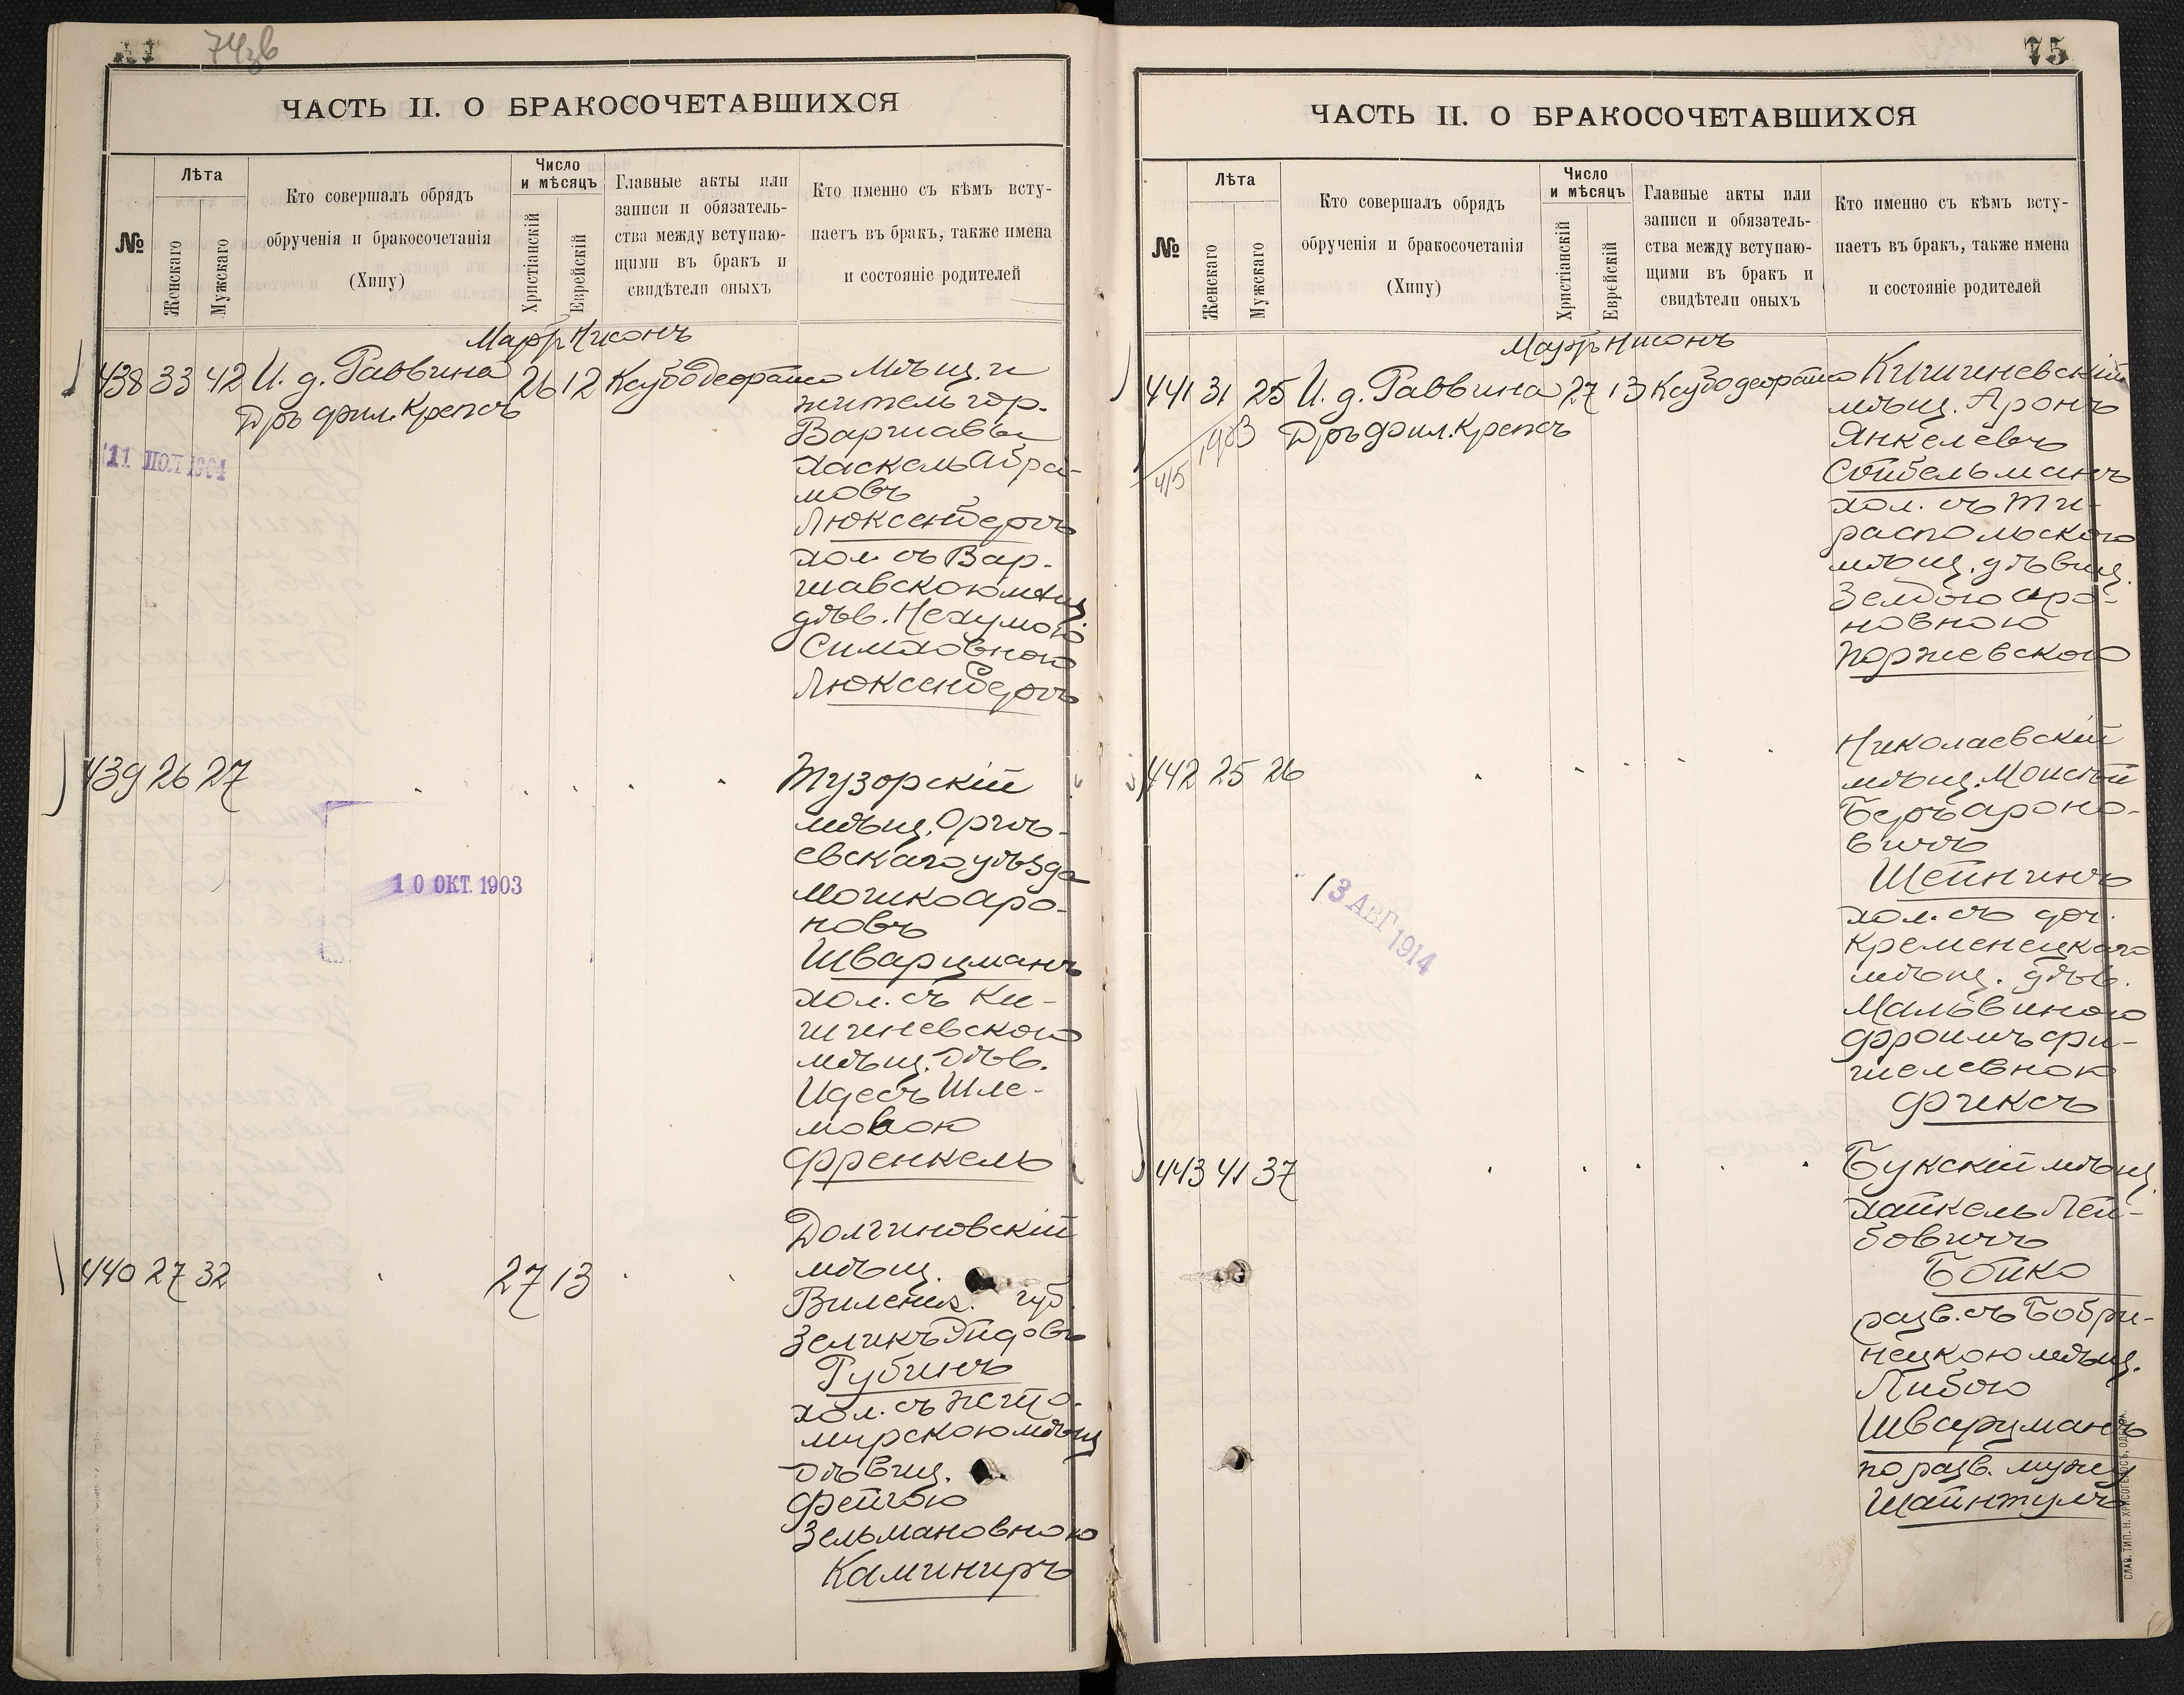 74зв
ЧАСТЬ II. О БРАКОСОЧЕТАВШИХСЯ
№
Лѣта
Женскаго
Мужскаго
Кто совершалъ обрядъ
обрученія и бракосочетанія
(Хипу)
Число
и мѣсяцъ
Христіанскій
Еврейскій
Главные акты или
записи и обязатель-
ства между вступаю-
щими въ бракъ и
свидѣтели оныхъ
Кто именно съ кѣмъ всту-
паетъ въ бракъ, также имена
и состояніе родителей
Мартъ Нисонъ
438 33 42 И. д. Раввина 26 12
Дръ фил. Крепсъ
11 ІЮЛ 1904
Мѣщ. и
житель гор.
Варшавы
Хаскель Абра-
мовъ
Люксенбергъ
хол. съ Вар-
шавскою мѣщ
дѣв. Нехумою
Симховною
Люксенбергъ
439 26 27
10 ОКТ. 1903
Тузорскій
мѣщ. Оргѣ-
евскаго уѣзда
Мошко Аро-
новъ
Шварцманъ
хол. съ Ки-
шиневскою
мѣщ. дѣв.
Идесъ Шле-
мовою
Френкель
440 27 32 27 13
Долгиновскій
мѣщ.
Виленск. губ.
Зеликъ Юдовъ
Рубинъ
хол. съ Жито-
мирскою мѣщ
дѣвиц.
Фейгою
Зельмановною
Каминиръ
75
ЧАСТЬ II. О БРАКОСОЧЕТАВШИХСЯ
№
Лѣта
Женскаго
Мужскаго
Кто совершалъ обрядъ
обрученія и бракосочетанія
(Хипу)
Число
и мѣсяцъ
Христіанскій
Еврейскій
Главные акты или
записи и обязатель-
ства между вступаю-
щими въ бракъ и
свидѣтели оныхъ
Кто именно съ кѣмъ всту-
паетъ въ бракъ, также имена
и состояніе родителей
Мартъ Нисонъ
441 31 25 И. д. Раввина 27 13
Дръ фил. Крепсъ
4/5 1903
Кишиневскій
мѣщ. Аронъ
Янкелевъ
Сойбельманъ
хол. съ Ти-
распольскою
мѣщ. дѣвиц.
Зелдою Аро-
новною
Поржевскою
442 25 26
13 АВГ 1914
Николаевскій
мѣщ. Моисей
Беръ Ароно-
вичъ
Шейнинъ
хол. съ доч.
Кременецкаго
мѣщ. дѣв.
Мальвиною
Фроимъ Фи-
шелевною
Фиксъ
443 41 37
Букскій мѣщ
Хайкель Лей-
бовичъ
Бойко
разв. съ Бобри-
нецкою мѣщ.
Либою
Шварцманъ
по разв. мужу
Шайнтулъ
СЛАВ. ТИП. Н. ХРИСОГЕЛОСЪ, ОДЕССА.